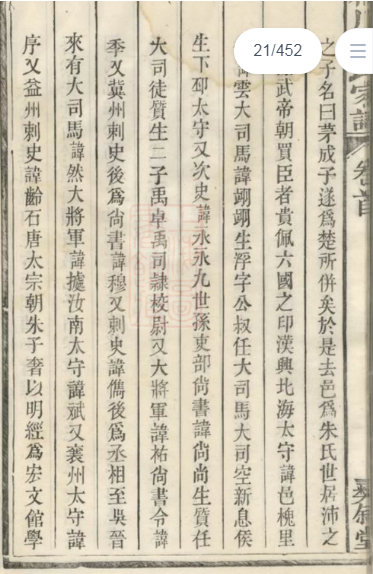 21/452
家譜 卷首 堂
之子名曰茅成子遂爲楚所併矣於是去邑爲朱氏世居沛之
武帝朝買臣者貴佩六國之印漢興北海太守諱邑槐里
雲大司馬諱翊翊生浮字公叔任大司馬大司空新息侯
生下邳太守又次史諱永永九世孫吏部尚書諱尚尚生質任
大司徒質生二子禹卓禹司隸校尉又大將軍諱祐尚書令諱
季又冀州刺史後爲尚書諱穆又刺史諱儁後爲丞相至吳晉
來有大司馬諱然大將軍諱據汝南太守諱斌又襄州太守諱
序又益州刺史諱齡石唐太宗朝朱子奢以明經爲宏文館學